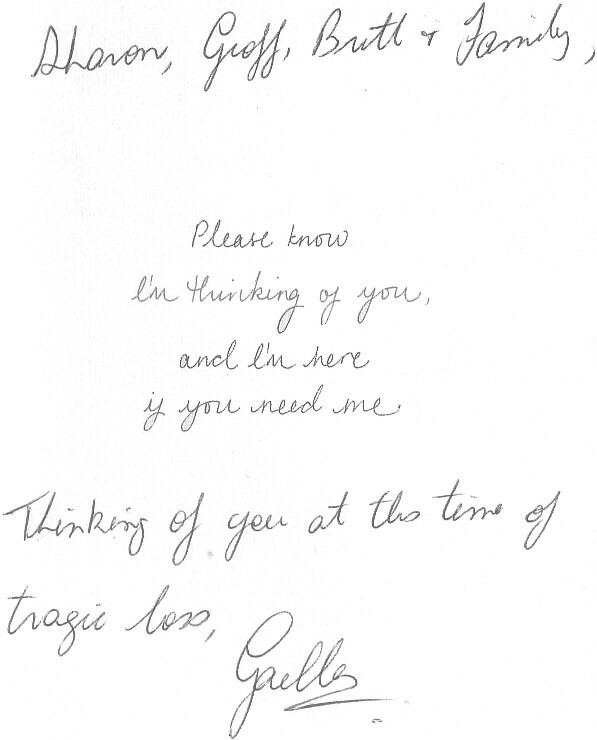 Sharon, Geoff, Britt + Family,
Please know
I'm thinking of you,
and I'm here
if you need me.
Thinking of you at this time of
tragic loss,
Gaelle